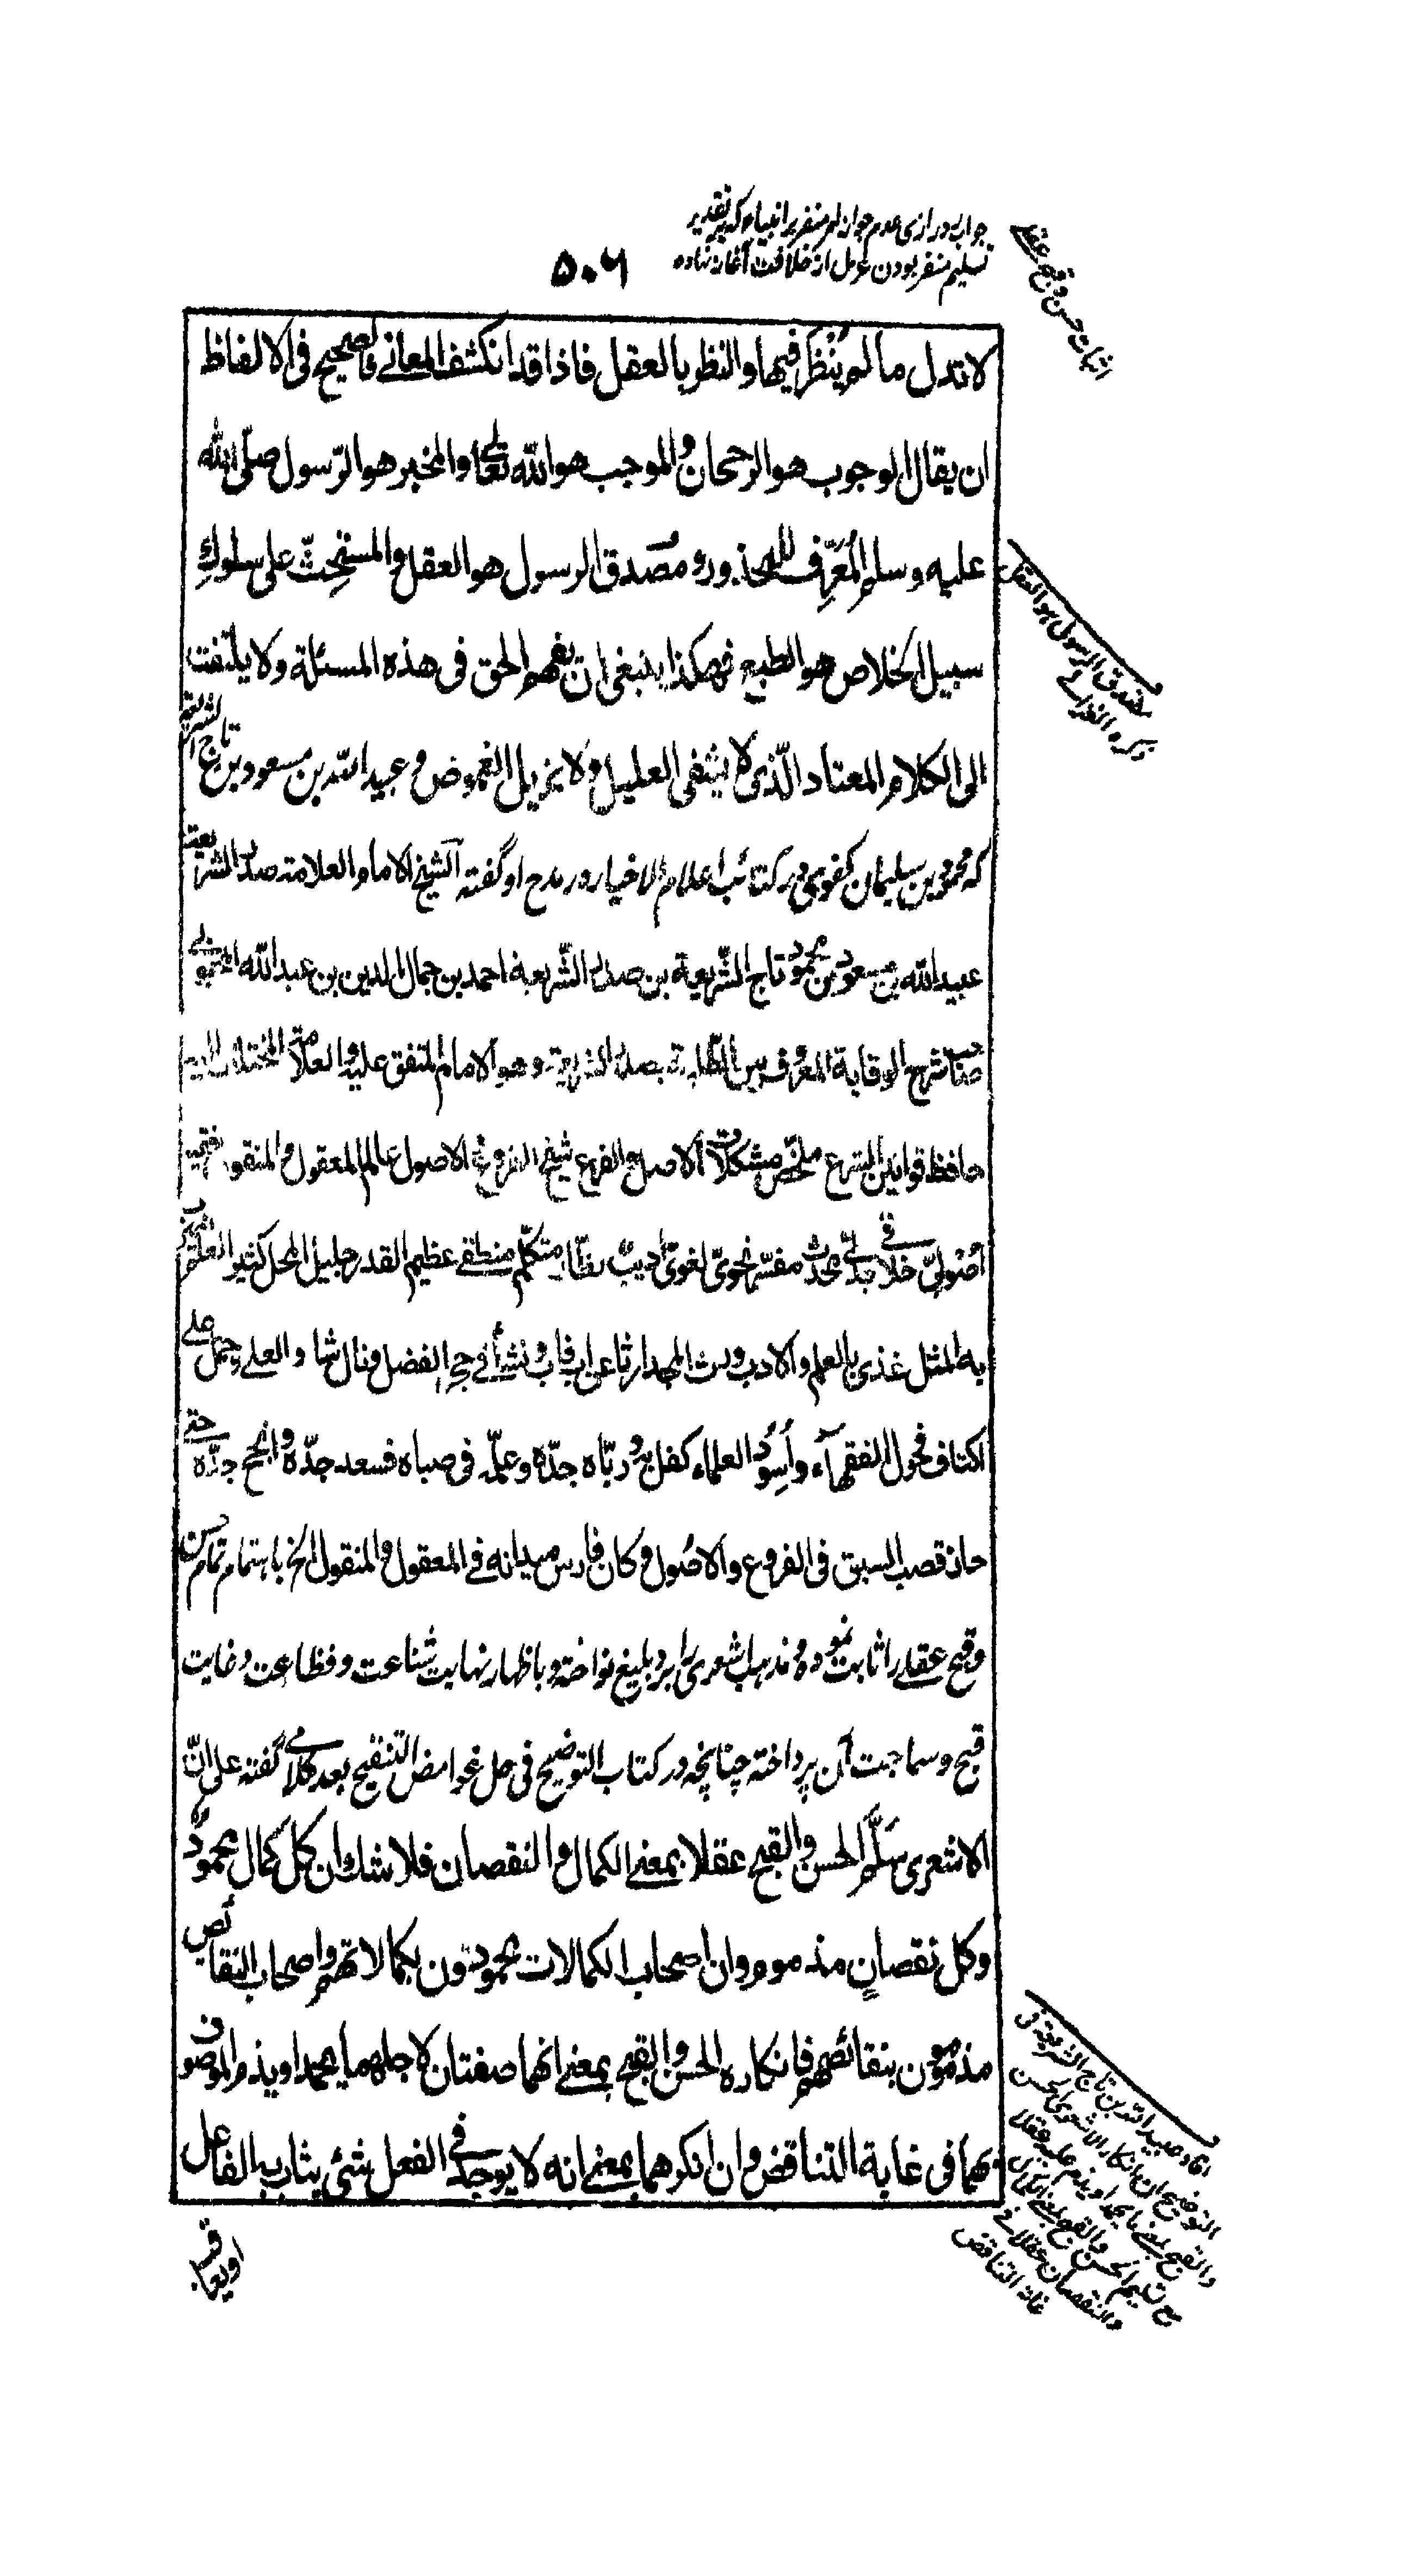 جواب رازی عدم جواز امر منفر بر انبیاء که بر تقدیر
تسلیم منفر بودن عزل از خلافت آغاز نهاده
۵۰۶
اثبات حسن و قبح عقلے
لا تدل ما لم يُنْظَر فيها والنظر بالعقل فاذا قد انكشف المعانے فالصحيح فى الالفاظ
ان يقال الوجوب هو الرجحان والموجب هو الله تعالى والمخبر هو الرّسول صلّى الله
عليه وسلم المُعَرِّف للمحذور ومصدق الرسول هو العقل والمستحِثّ على سلوكِ
سبيل الخلاص هو الطبع فهكذا ينبغى ان يفهم الحق فى هذه المسئلة ولا يلتفت
الى الكلام المعتاد الّذى لا يشفى العليل ولا يزيل الغموض و عبید اللہ بن مسعود بن تاج الشریعۃ
کہ محمود بن سلیمان کفوی در کتائب اعلام الاخیار در مدح او گفتہ الشيخ الامام العلامة صدر الشريعة
عبيد الله بن مسعود بن محمود تاج الشّريعة بن صدر الشّريعة احمد بن جمال الدين بن عبد الله المحبوبى
صاحب شرح الوقاية المعروف بين الطلبة بصدر الشريعة وهو الامام المتفق عليه والعلامة المختلف اليه
حافظ قوانين الشرع ملخّص مشكلات الاصل والفرع شيخ الفروع والاصول عالم المعقول والمنقول فقيه
اُصُولىّ خلافى جدلى محدث مفسّر نحوىّ لغوىّ اديب نظار متكلّم منطقے عظيم القدر جليل المحل كثير العلم يضرب
به المثل غذى بالعلم والادب وورث المجد ارثا عن اب فاب ونشأ فے حجر الفضل ونال العلے وحمل علے
اكتاف فحول الفقهآء وأسود العلماء كفل به وربّاه جدّه وعلّمه فى صباه فسعد جدّه وانجح جدّه حتے
حاز قصب السبق فى الفروع والاصول وكان فارس ميدانه فے المعقول والمنقول الخ باہتمام تمام حسن
و قبح عقلے را ثابت نمودہ و مذہب اشعری را برد بلیغ نواختہ و باظہار نہایت شناعت و فظاعت و غایت
قبح و سماجت آن پرداختہ چنانچہ در کتاب التوضیح فی حل غوامض التنقیح بعد کلامے گفتہ على انّ
الاشعرى سَلَّم الحسن والقبح عقلا بمعنے الكمال والنقصان فلا شك ان كل كمال محمود
وكل نقصانٍ مذموم وان اصحاب الكمالات محمودون بكمالاتهم واصحاب النقائص
مذمومون بنقائصهم فانكاره الحسن والقبح بمعنے انهما صفتان لاجلهما يحمد او يذم الموصوف
بهما فى غاية التناقض وان انكرهما بمعنے انه لا يوجد فى الفعل شئ يثاب به الفاعل
او يعاقب
مصدق الرسول ہو العقل
ذکرہ الغزالے
افاد عبید اللہ بن تاج الشریعۃ فی
التوضیح ان انکار الاشعری الحسن
والقبح بمعنے ما یحمد او یذم علیہ عقلا
مع تسلیم الحسن والقبح بمعنے الکمال
والنقصان عقلا فے
غایۃ التناقض